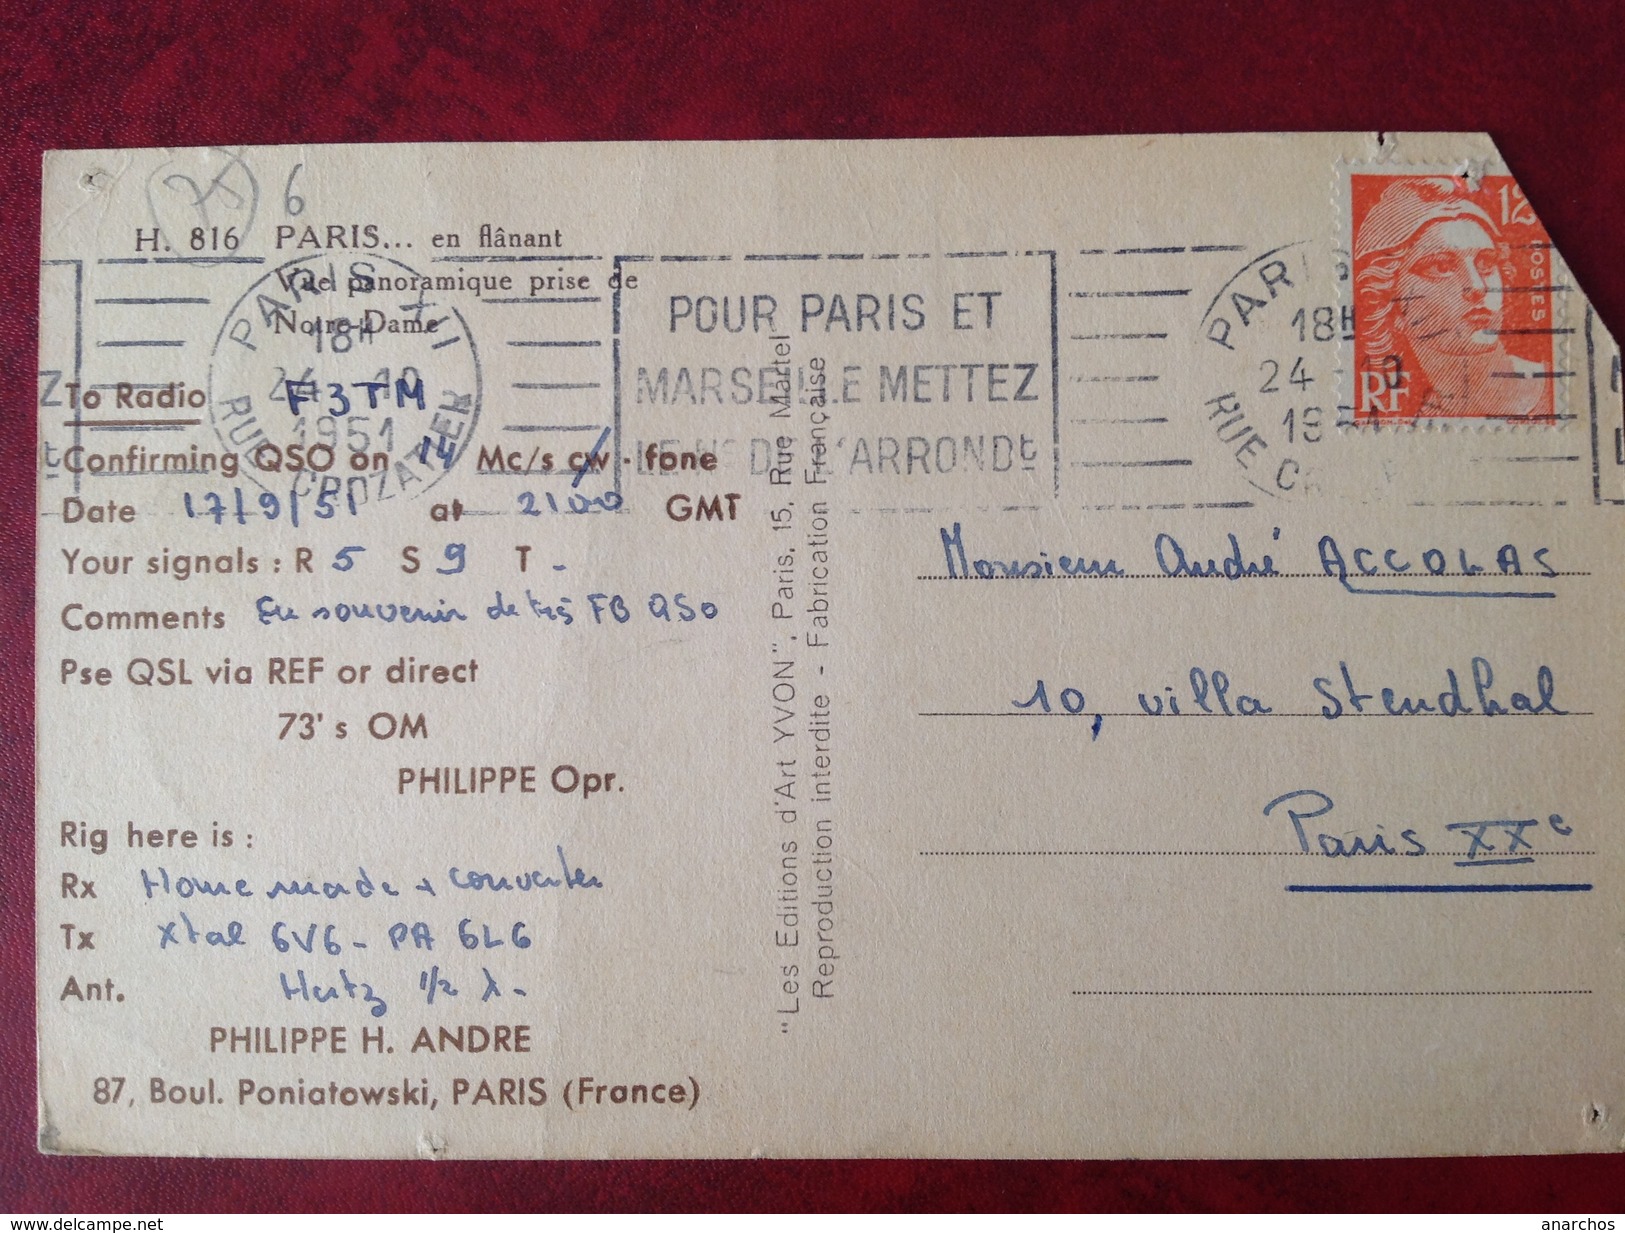 (75)
6
H. 816 PARIS... en flânant
Vue panoramique prise de
Notre-Dame
PARIS XII
18H
24-10
1951
RUE CROZATIER
POUR PARIS ET
MARSEILLE METTEZ
LE N° DE L'ARRONDt
PARIS
18H
24-10
1951
RUE
12F
POSTES
RF
GANDON
To Radio F3TM
Confirming QSO on 14 Mc/s cw - fone
Date 17/9/51 at 2100 GMT
Your signals : R 5 S 9 T -
Comments En souvenir de très FB QSO
Pse QSL via REF or direct
73' s OM
PHILIPPE Opr.
Rig here is :
Rx Home made + converter
Tx Xtal 6V6 - PA 6L6
Ant. Hertz 1/2 λ -
PHILIPPE H. ANDRE
87, Boul. Poniatowski, PARIS (France)
"Les Editions d'Art YVON", Paris, 15, Rue Martel
Reproduction interdite - Fabrication Française
Monsieur André ACCOLAS
10, villa Stendhal
Paris XXe
www.delcampe.net
anarchos